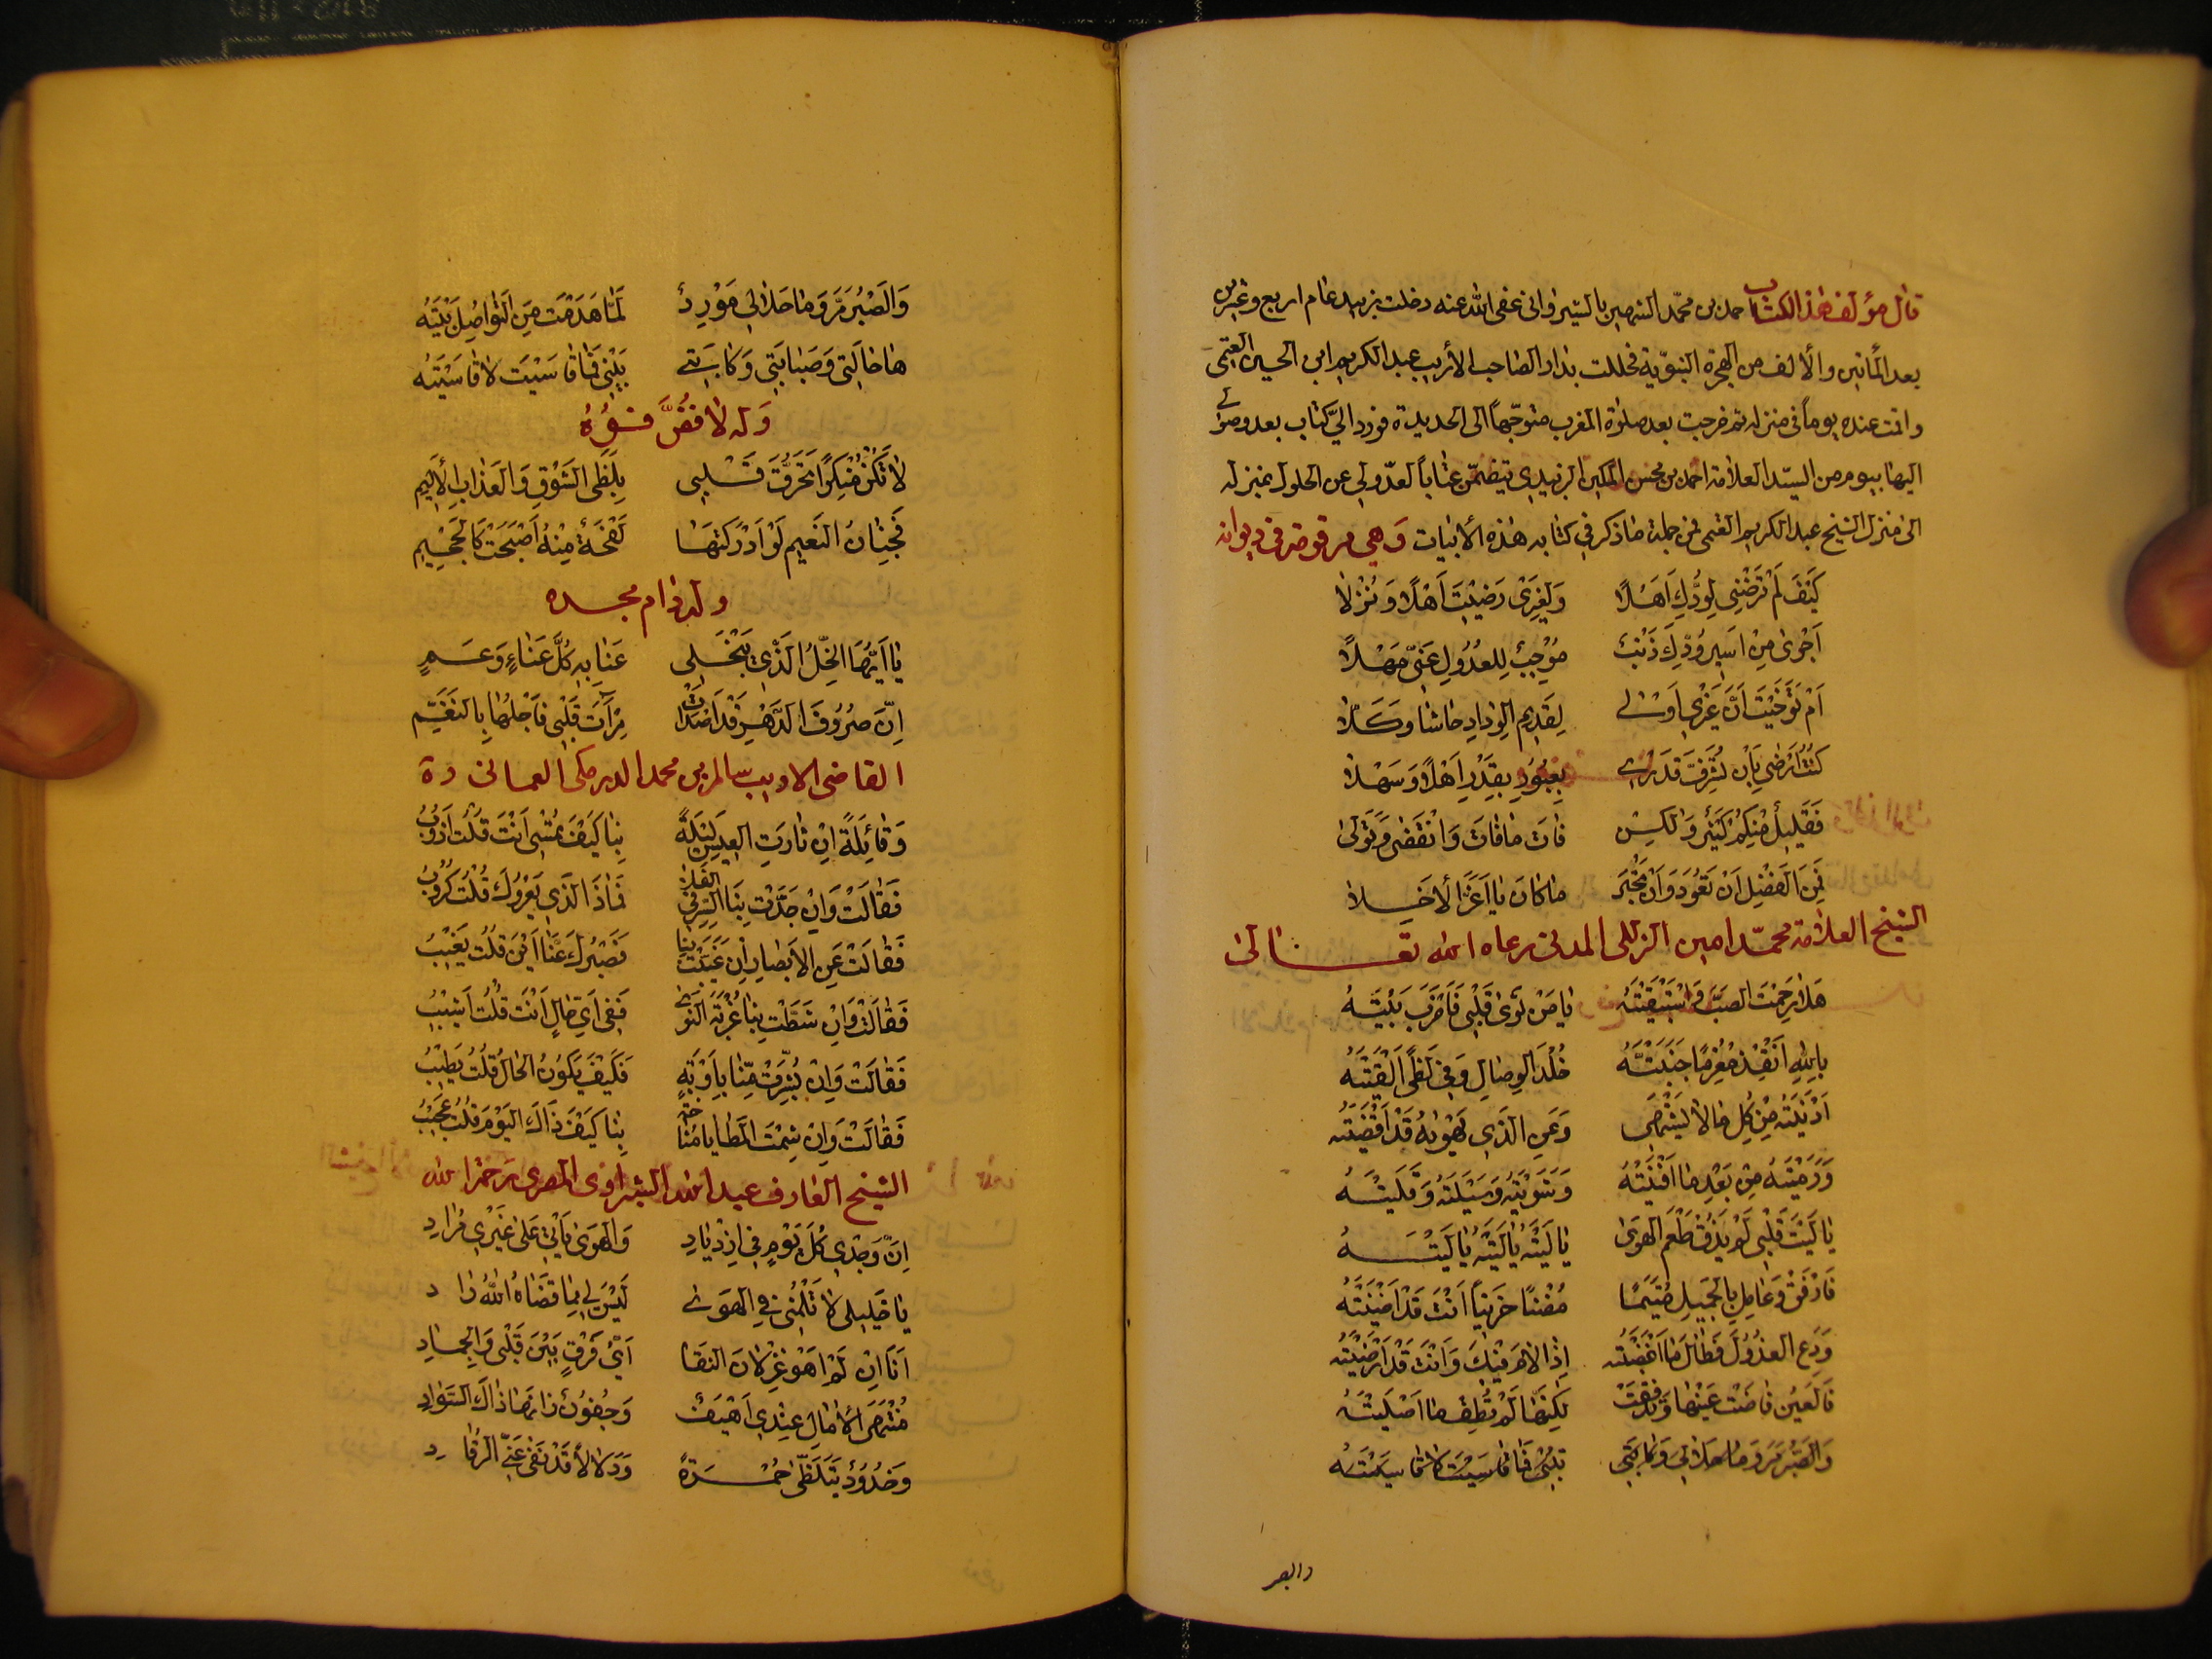 قال مؤلف هذا الكتاب احمد بن محمد الشهير بالشرواني عفى الله عنه دخلت زبيد عام اربع وعشرين
بعد المأتين والألف من الهجرة النبوّية فحللت بدار الصاحب الأريب عبد الكريم ابن الحسين العتمى
واقمت عنده يوماً في منزله ثم خرجت بعد صلوة المغرب متوجّهاً الى الحديدة فورد اليّ كتاب بعد وصولي
اليها بيوم من السيّد العلامة احمد بن محسن المكين الزبيدى يتضمّن عتاباً لعدّولي عن الحلول بمنزله
الى منزل الشيخ عبد الكريم العتمى فمن جملة ما ذكر في كتابه هذه الأبيات وهي مرقومة في ديوانه
كَيْفَ لَمْ تَرْضَنِي لِوُدِّكِ اَهْلًا وَلِغَيْرِى رَضَيْتَ اَهْلًا وَنُزْلا
اَجَرىٰ مِنْ اَسِيرِ وُدِّكَ ذَنْبٌ مُوْجِبٌ لِلعُدُولِ عَنِّى مَهْلًا
اَمْ تَوَخَّيْتَ اَنَّ غَيْرِي اَوْلٰى لِقَدِيمِ الوِدَادِ حاشا وَكَلّا
كُنْتُ اَرْضٰى بِاَنْ تُشَرِّفَ قَدْرِي بِعُبُورٍ بِقَدْرِ اَهْلًا وَسَهْلًا
فَقَلِيلٌ مِنْكُمْ كَثِيْرٌ وَلٰكِنْ فَاتَ مَا فَاتَ وَانْقَضٰى وَتَوَلّىٰ
فَمِنَ الفَضْلِ اَنْ تَعُودَ وَاَنْ تَجْبُرَ مَا كَانَ يَا اَعَزَّ الأَخِلّا
الشيخ العلامة محمّد امين الزللى المدنى رعاه الله تعالىٰ
هَلّا رَحِمْتَ الصَبَّ وَاسْتَبْقَيْتَهُ يَا مَنْ ثَوىٰ قَلْبِى فَاَخْرَبَ بَيْتَهُ
بِاللهِ اَنْقِذْ مُغْرَمًا جَنَّبْتَهُ خُلْدَ الوِصَالِ وَفِي لَظًى اَلْقَيْتَهُ
اَدْنَيْتَهُ مِنْ كُلِّ مَالا يَشْتَهِى وَعَنِ الَّذِي يَهْوٰيهُ قَدْ اَقْصَيْتَهُ
وَرَمَيْتَهُ مِنْ بَعْدِ مَا اَفْنَيْتَهُ وَشَوَيْتَهُ وَسَبَيْتَهُ وَقَلَيْتَهُ
يَا لَيْتَ قَلْبِى لَمْ يَذُقْ طَعْمَ الهَوىٰ يَا لَيْتَهُ يَا لَيْتَهُ يَا لَيْتَهُ
فَارْفَقْ وَعَامِلْ بِالجَمِيلِ مُتَيَّمًا مُضْنًا حَزِيناً اَنْتَ قَدْ اَضْنَيْتَهُ
وَدَعِ العَذُوْلَ فَطَالَ مَا اَغْضَبْتُهُ اِذْ لَامَ فِيْكَ وَاَنْتَ قَدْ اَرْضَيْتَهُ
فَالعَيْنُ فَاضَتْ عَيْنُهَا وَتَدَفَّقَتْ لٰكِنَّهَا لَمْ تُطْفِ مَا اَصْلَيْتَهُ
وَالصَبْرُ مَرَّ وَمَا حَلَا لِي
والصبر
وَالصَبْرُ مَرَّ وَمَا حَلَا لِي مَوْرِدٌ لَمَّا هَدَمْتَ مِنَ التَّوَاصُلِ بَيْتَهُ
هَا حَالَتِى وَصَبَابَتِى وَكَابَتِى بِيْنِى فَمَا قَاسَيْتَ لَا قَاسَيْتَهُ
وَله لا فُضَّ فُوْهُ
لَا تَكُنْ مُنْكِرًا تَحَرُّقَ قَلْبِى بِلَظَى الشَوْقِ وَالعَذَابِ الأَلِيمِ
فَجِنَانُ النَعِيمِ لَوْ اَدْرَكَتْهَا لَفْحَةٌ مِنْهُ اَصْبَحَتْ كَالجَحِيمِ
وله دام مجده
يَا اَيُّهَا الخِلُّ الَّذِي يَنْجَلِى عَنَّا بِهِ كُلُّ عَنَاءٍ وَغَمٍ
اِنَّ صُرُوفَ الدَّهْرِ قَدْ اَصْدَأَتْ مِرْآتَ قَلْبِى فَاجْلِهَا بِالنَغَمِ
القاضى الاديب سالم بن محمد الدرمكى العمانى ره
وَقَائِلَةً اِنْ ثَارَتِ العِيسُ لَيْلَةً بِنَا كَيْفَ تُمْسِى اَنْتَ قُلْتُ اَذُوْبُ
فَقَالَتْ وَاِنْ جَدَّتْ بِنَا السَيْرَ فِى الفَلَا فَمَاذَا الَّذِى يَعْرُوْكَ قُلْتُ كُرُوْبُ
فَقَالَتْ عَنِ الأَبْصَارِ اِنْ غَيَّبَتْ بِنَا فَصَبْرُكَ عَنَّا اَيْنَ قُلْتُ يَغِيْبُ
فَقَالَتْ وَاِنْ شَطَّتْ بِنَا غُرْبَةُ النَوىٰ فَفِى اَيِّ حَالٍ اَنْتَ قُلْتُ اَشِيْبُ
فَقَالَتْ وَاِنْ بُشِّرْتَ مِنَّا بِاَوْبَةٍ فَكَيْفَ يَكُوْنُ الحَالُ قُلْتُ يَطِيْبُ
فَقَالَتْ وَاِنْ شِمْتَ المَطَايَا مُنَاخَةً بِنَا كَيْفَ ذَاكَ اليَوْمَ قُلْتُ عَجِيْبُ
الشيخ العارف عبد الله الشبراوى المصرى رحمه الله
اِنَّ وَجْدِى كُلَّ يَوْمٍ فِى اِزْدِيَادِ وَالهَوىٰ يَأْتِي عَلىٰ غَيْرِى مُرَادِ
يَا خَلِيلِى لَا تَلُمْنِى فِى الهَوىٰ لَيْسَ لِى مِمَّا قَضَاهُ اللهُ رَاد
اَنَا اِنْ لَمْ اَهْوَ غِزْلَانَ النَقَا اَيُّ فَرْقٍ بَيْنَ قَلْبِى وَالجِمَادِ
مُنْتَهَى الأٰمَالِ عِنْدِى اَهْيَفٌ وَجُفُونٌ زَانَهَا ذَاكَ السَّوَادِ
وَخُدُوْدٌ تَتَلَظّىٰ حُمْرَةً وَدَلَالاً قَدْ نَفىٰ عَنِّى الرُّقَاد